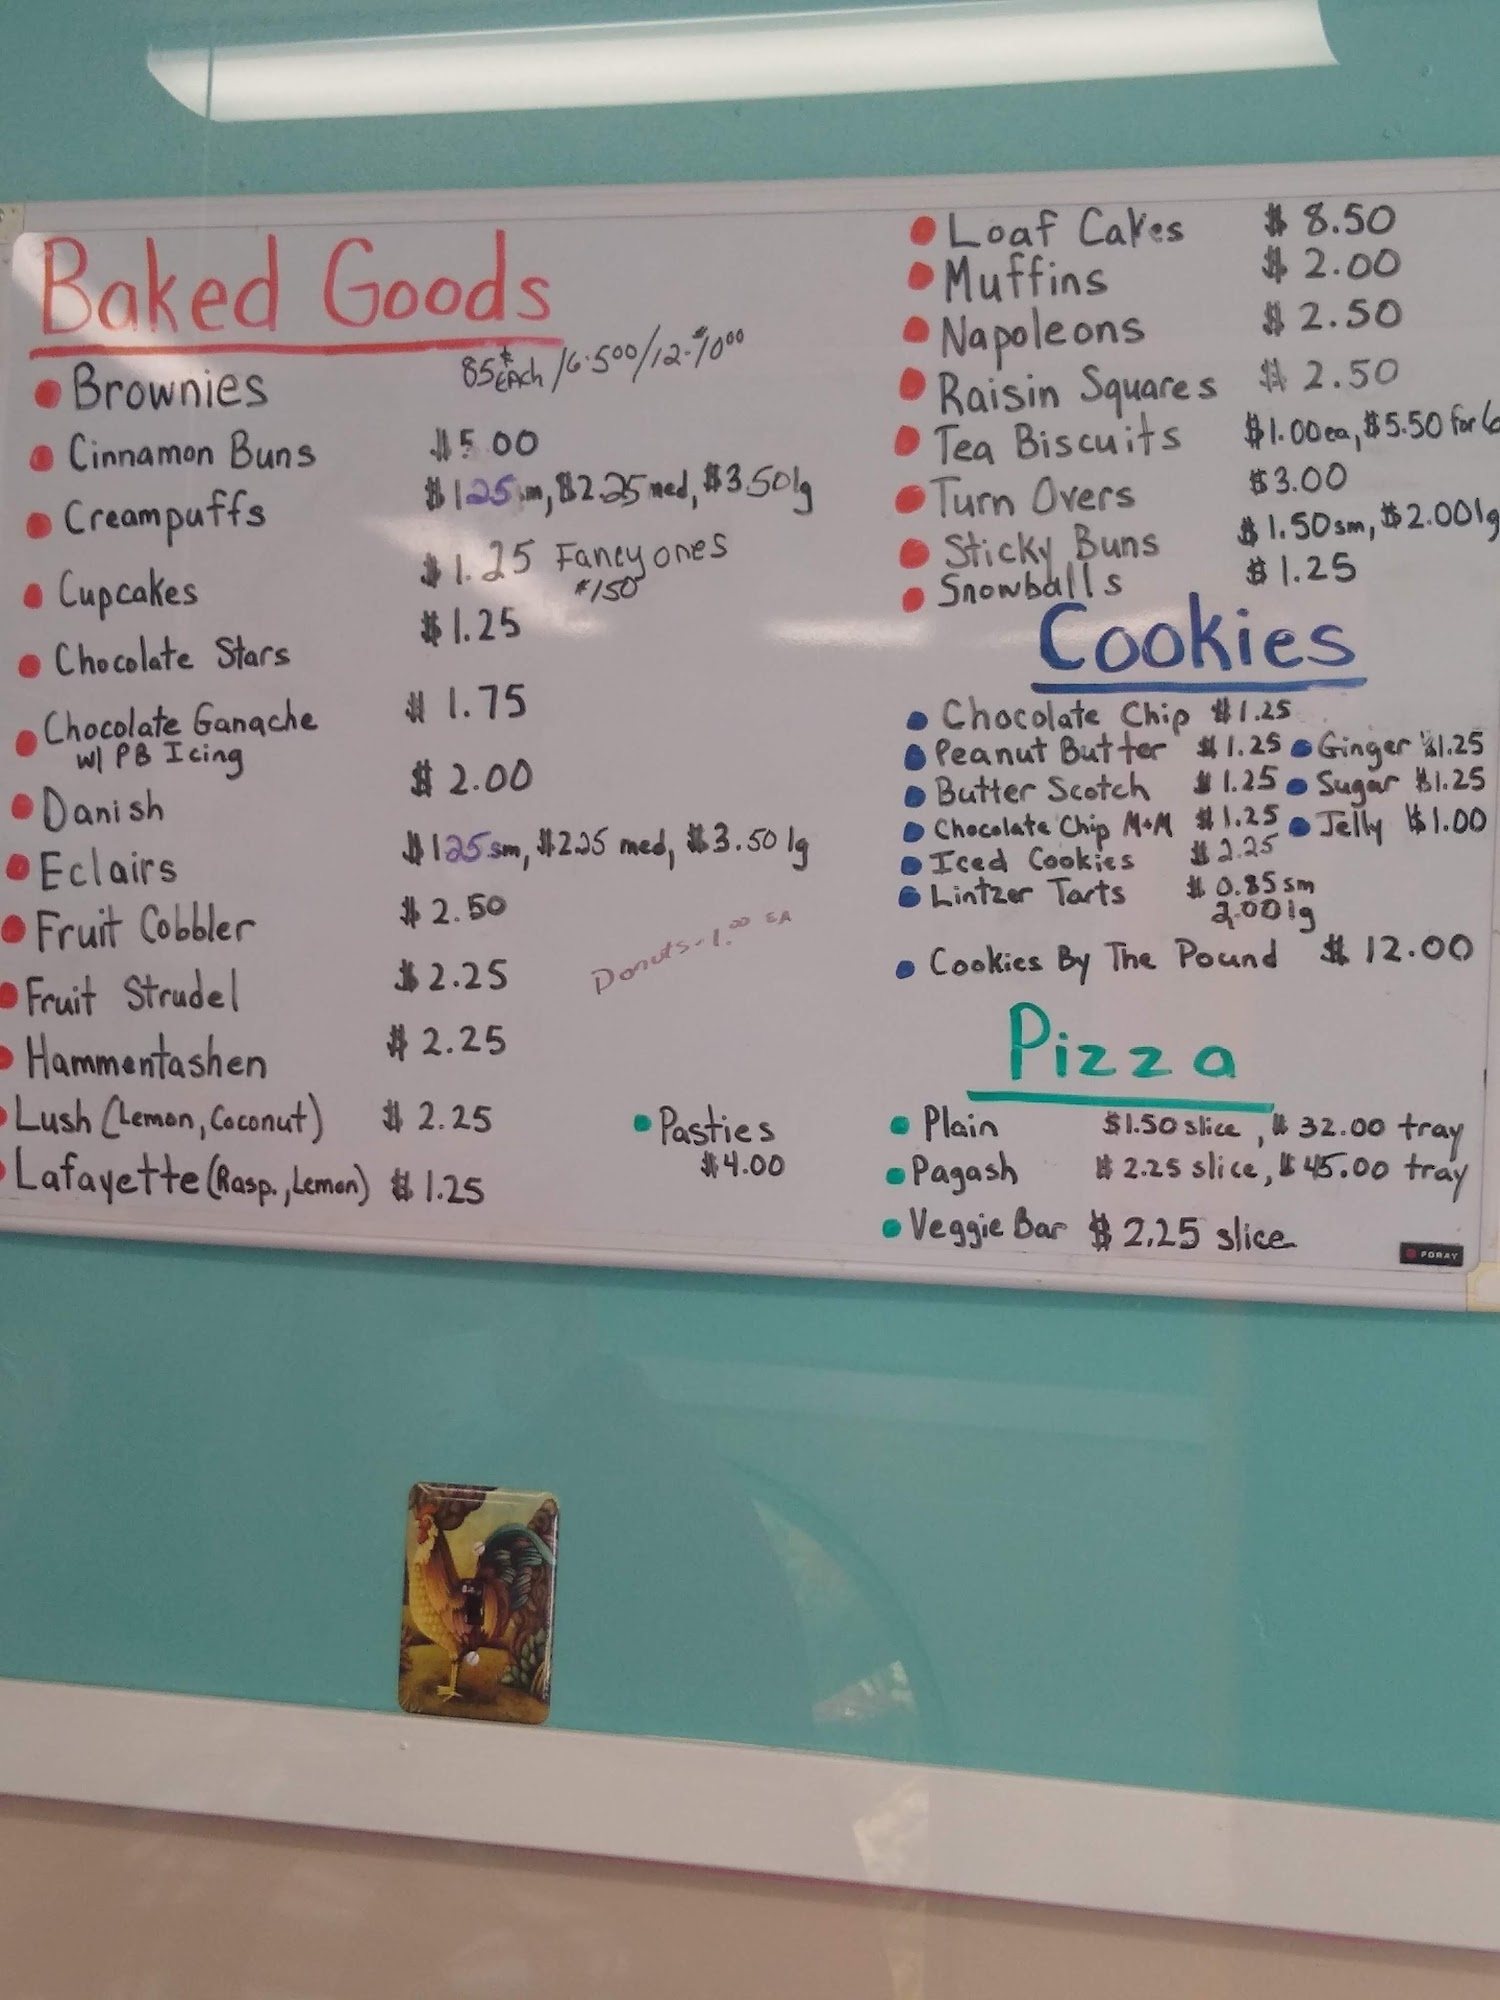 Baked Goods
Brownies 85¢ EACH / 6-5⁰⁰ / 12-$10⁰⁰
Cinnamon Buns $5.00
Creampuffs $125 sm, $2.25 med, $3.50 lg
Cupcakes $1.25 Fancy ones
$150
Chocolate Stars $1.25
Chocolate Ganache $1.75
w/ PB Icing
Danish $2.00
Eclairs $125 sm, $2.25 med, $3.50 lg
Fruit Cobbler $2.50
Donuts-1.⁰⁰ EA
Fruit Strudel $2.25
Hammentashen $2.25
Lush (Lemon, Coconut) $2.25
Lafayette (Rasp., Lemon) $1.25
Pasties
$4.00
Loaf Cakes $8.50
Muffins $2.00
Napoleons $2.50
Raisin Squares $2.50
Tea Biscuits $1.00 ea, $5.50 for 6
Turn Overs $3.00
Sticky Buns $1.50 sm, $2.00 lg
Snowballs $1.25
Cookies
Chocolate Chip $1.25
Peanut Butter $1.25 Ginger $1.25
Butter Scotch $1.25 Sugar $1.25
Chocolate Chip M+M $1.25 Jelly $1.00
Iced Cookies $2.25
Lintzer Tarts $0.85 sm
2.00 lg
Cookies By The Pound $12.00
Pizza
Plain $1.50 slice, $32.00 tray
Pagash $2.25 slice, $45.00 tray
Veggie Bar $2.25 slice
FORAY